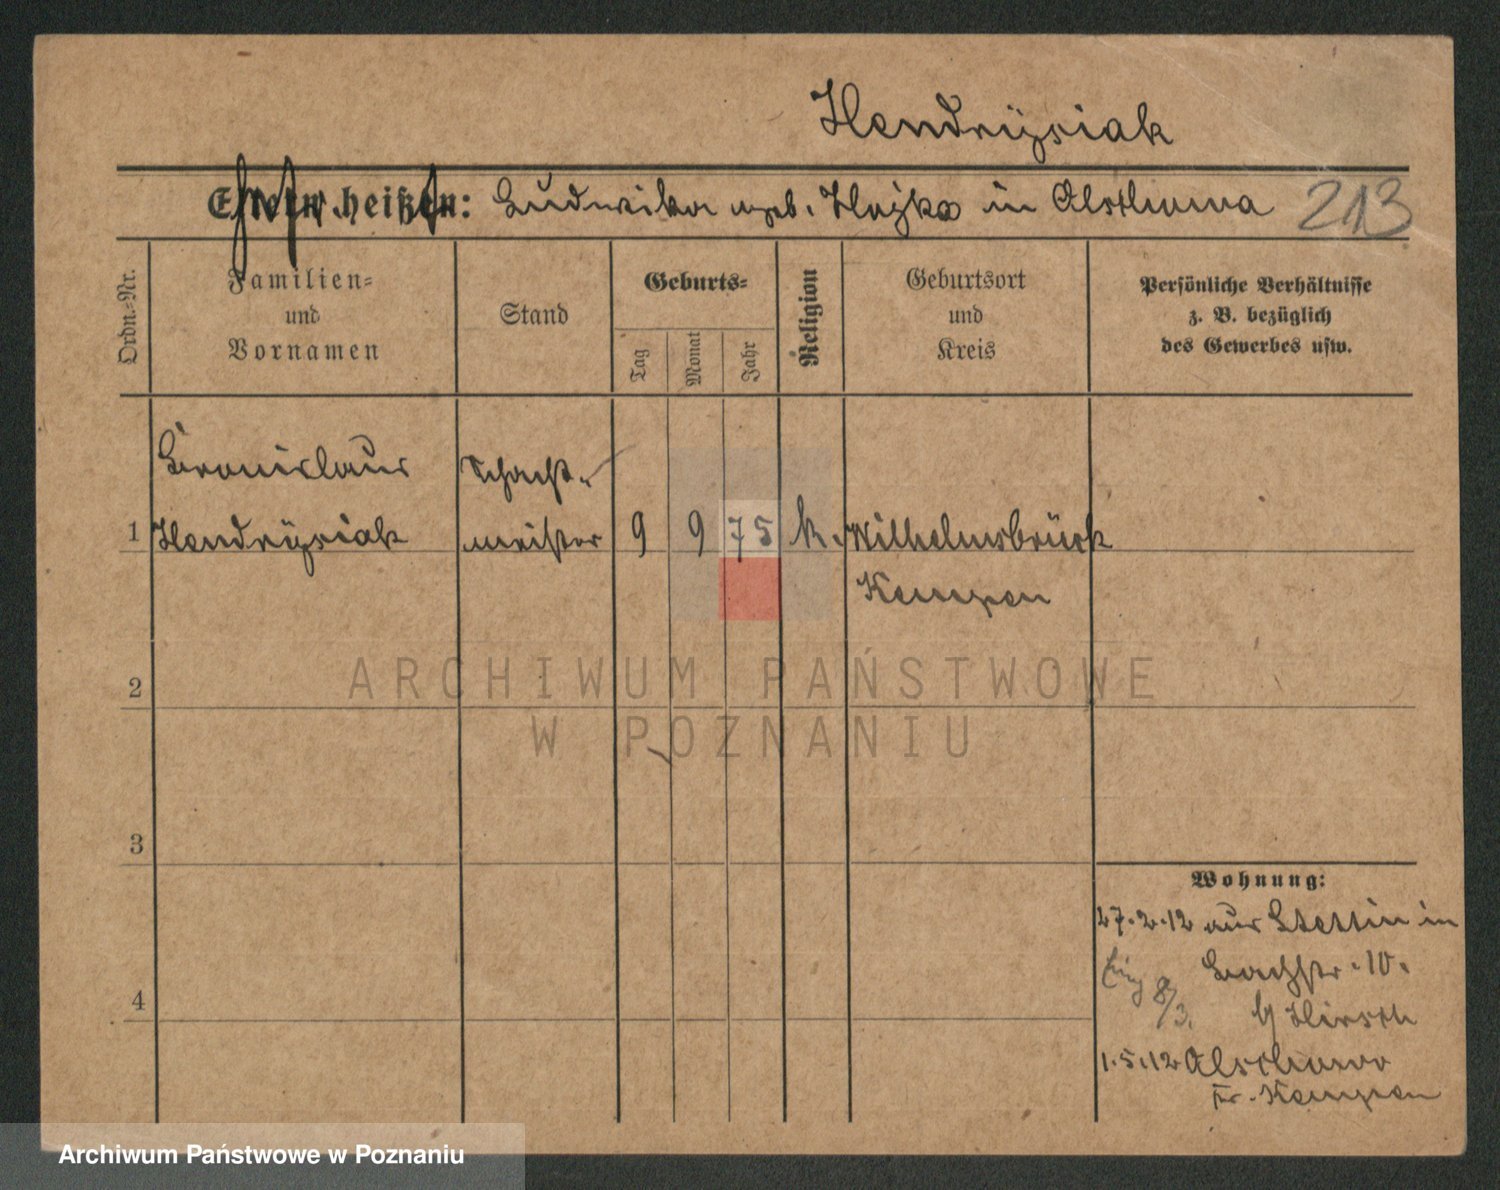 Hendrysiak
Eltern heißen: Ludwika geb. Hojka in Olschowa 213
Ordn.-Nr.
Familien-
und
Vornamen
Stand
Geburts-
Tag
Monat
Jahr
Religion
Geburtsort
und
Kreis
Persönliche Verhältnisse
z. B. bezüglich
des Gewerbes usw.
Bronislaus Schacht-
1 Hendrysiak meister 9 9 75 k. Wilhelmsbrück
Kempen
ARCHIWUM PAŃSTWOWE
2
W POZNANIU
3
Wohnung:
27.2.12 aus Stettin in
Bachstr. 10.
8/3. Hirsch
4
1.5.12 Olschowa
Kr. Kempen
Archiwum Państwowe w Poznaniu